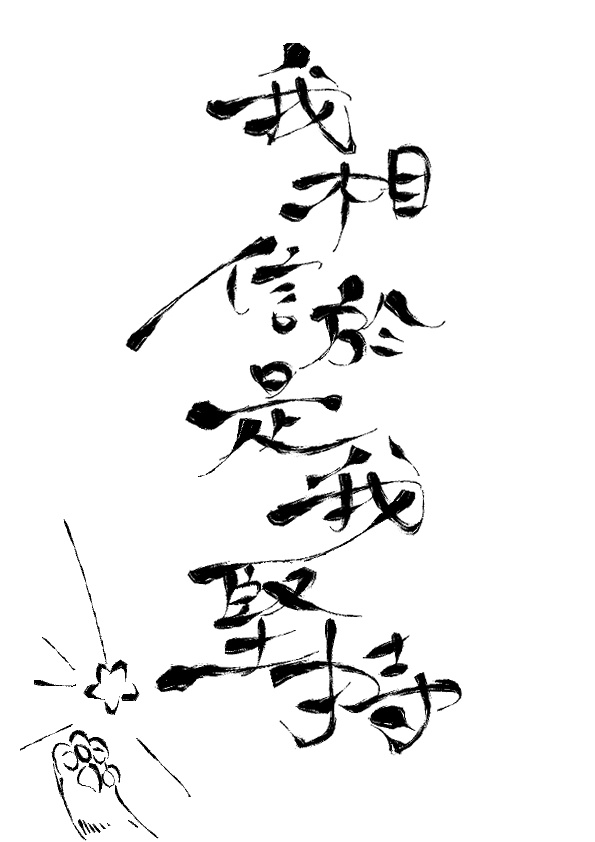 我相信於是我堅持